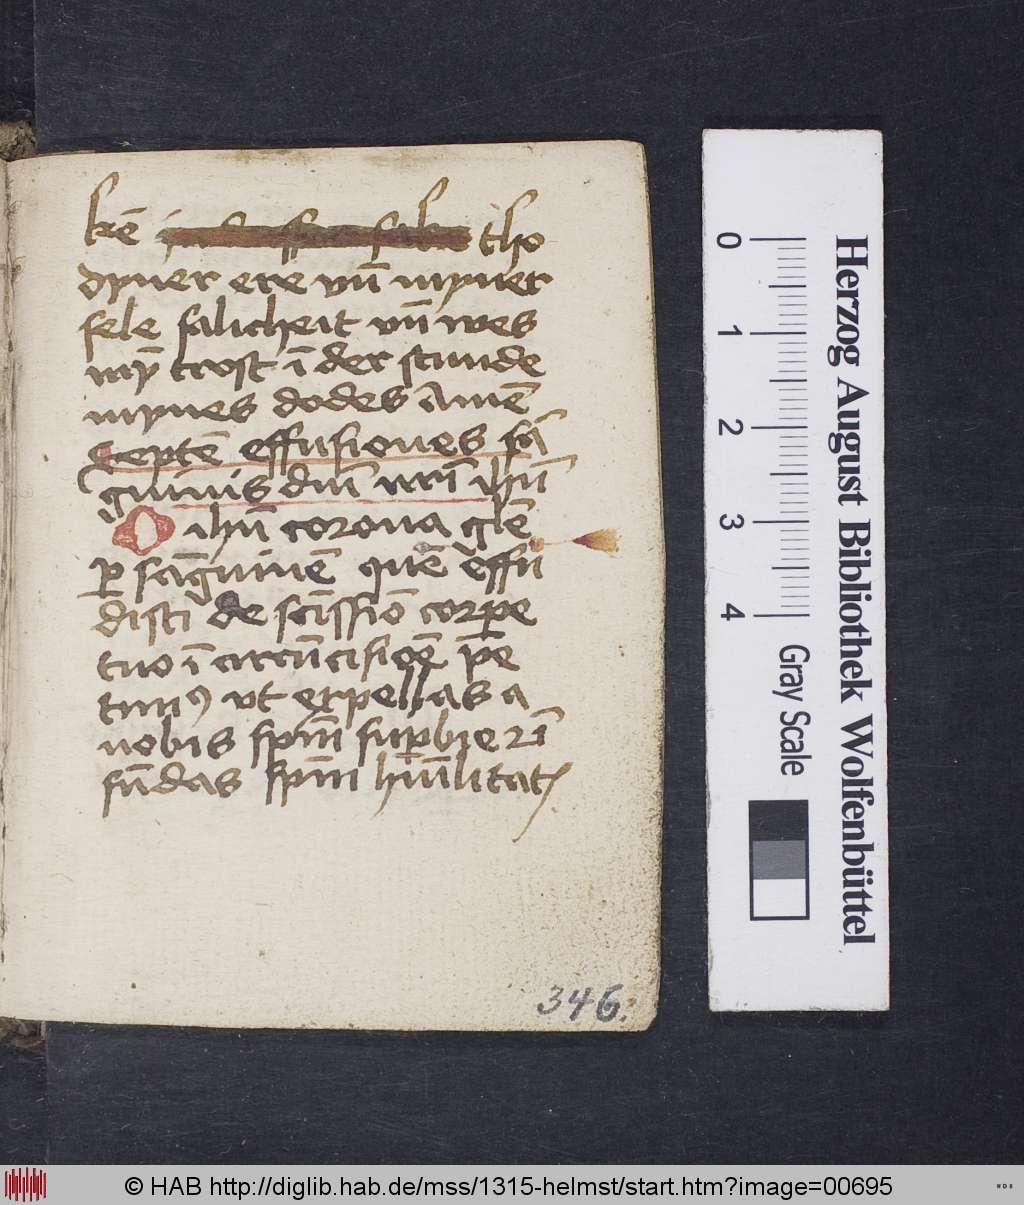 kē tho
dyner ere vn̄ myner
sele salicheit vn̄ wes
mȳ trost ī der stunde
mynes dodes Amē
Septē effusiones sā
guinis dn̄i nr̄i ih̄u
O ih̄u corona gl̄e
ꝑ sāguinē quē effu
disti de scissiōe corꝑe
tuo ī circūcisiōe
ut expellas a
nobis spm̄ suꝑbie ⁊ ī
fūdas spm̄ hūilitatꝭ
346.
Herzog August Bibliothek Wolfenbüttel
0 1 2 3 4
Gray Scale
© HAB http://diglib.hab.de/mss/1315-helmst/start.htm?image=00695